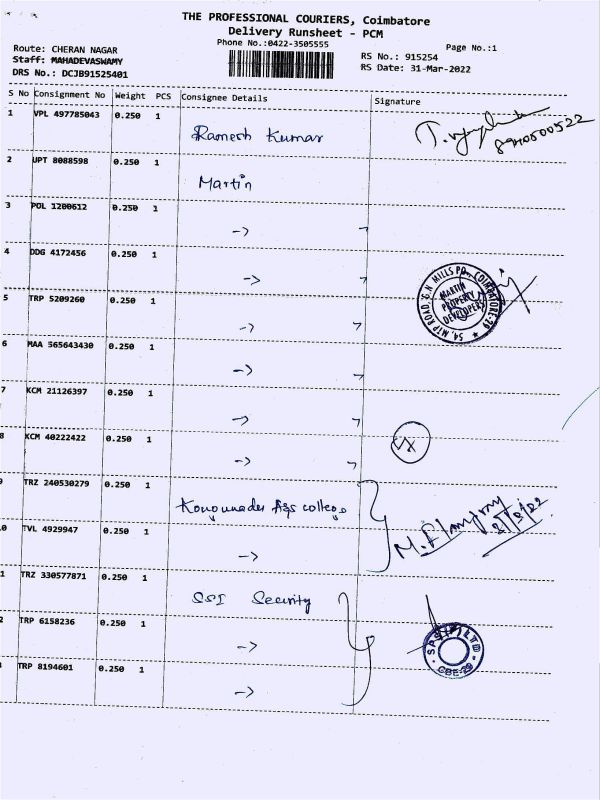 THE PROFESSIONAL COURIERS, Coimbatore
Delivery Runsheet - PCM
Phone No.:0422-3505555
Page No.:1
Route: CHERAN NAGAR
Staff: MAHADEVASWAMY
DRS No.: DCJB91525401
RS No.: 915254
RS Date: 31-Mar-2022
S No Consignment No Weight PCS Consignee Details Signature
1 VPL 497785043 0.250 1
Ramesh Kumar
8940500522
2 UPT 8088598 0.250 1
Martin
3 POL 1200612 0.250 1
4 DDG 4172456 0.250 1
54, MTP ROAD, G.N MILLS PO, COIMBATORE-29
MARTIN
PROPERTY
DEVELOPERS
5 TRP 5209260 0.250 1
6 MAA 565643430 0.250 1
7 KCM 21126397 0.250 1
8 KCM 40222422 0.250 1
9 TRZ 240530279 0.250 1
0 TVL 4929947 0.250 1
1 TRZ 330577871 0.250 1
SSI Security
2 TRP 6158236 0.250 1
CBE-29
3 TRP 8194601 0.250 1